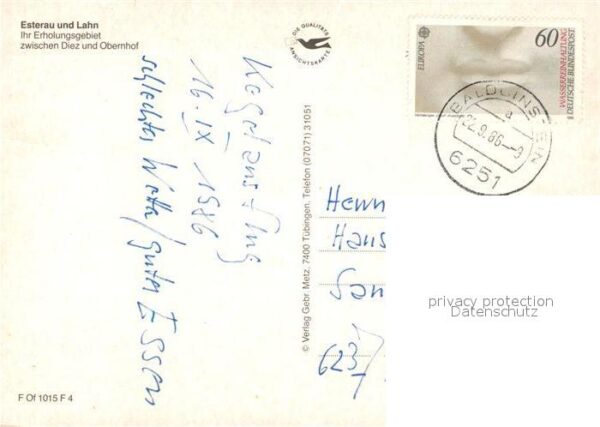 Esterau und Lahn
Ihr Erholungsgebiet
zwischen Diez und Obernhof
DIE QUALITÄTS
ANSICHTSKARTE
EUROPA
60
WASSERREINHALTUNG
DEUTSCHE BUNDESPOST
BALDUINSTEIN
a
22.9.86--9
6251
Kegelausflug
16. IX 1986
schlechtes Wetter/gutes Essen
© Verlag Gebr. Metz, 7400 Tübingen, Telefon (07071) 31051
Herrn
Hans
623
privacy protection
Datenschutz
F Of 1015 F 4